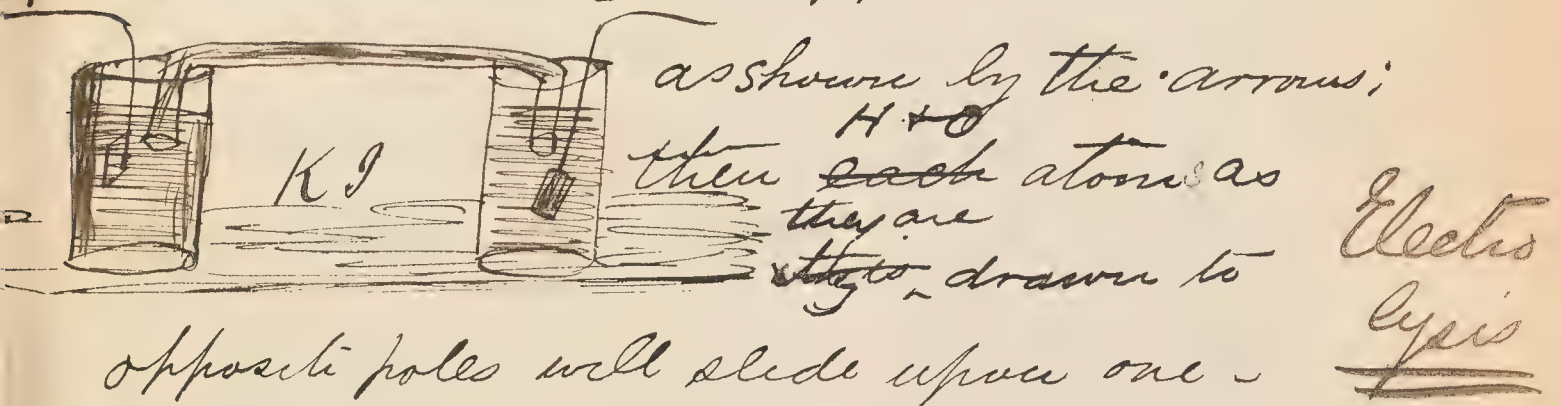 as shown by the arrows;
H + O
then each atoms as
they are
it is drawn to
opposite poles will slide upon one -
KI
Electro
lysis